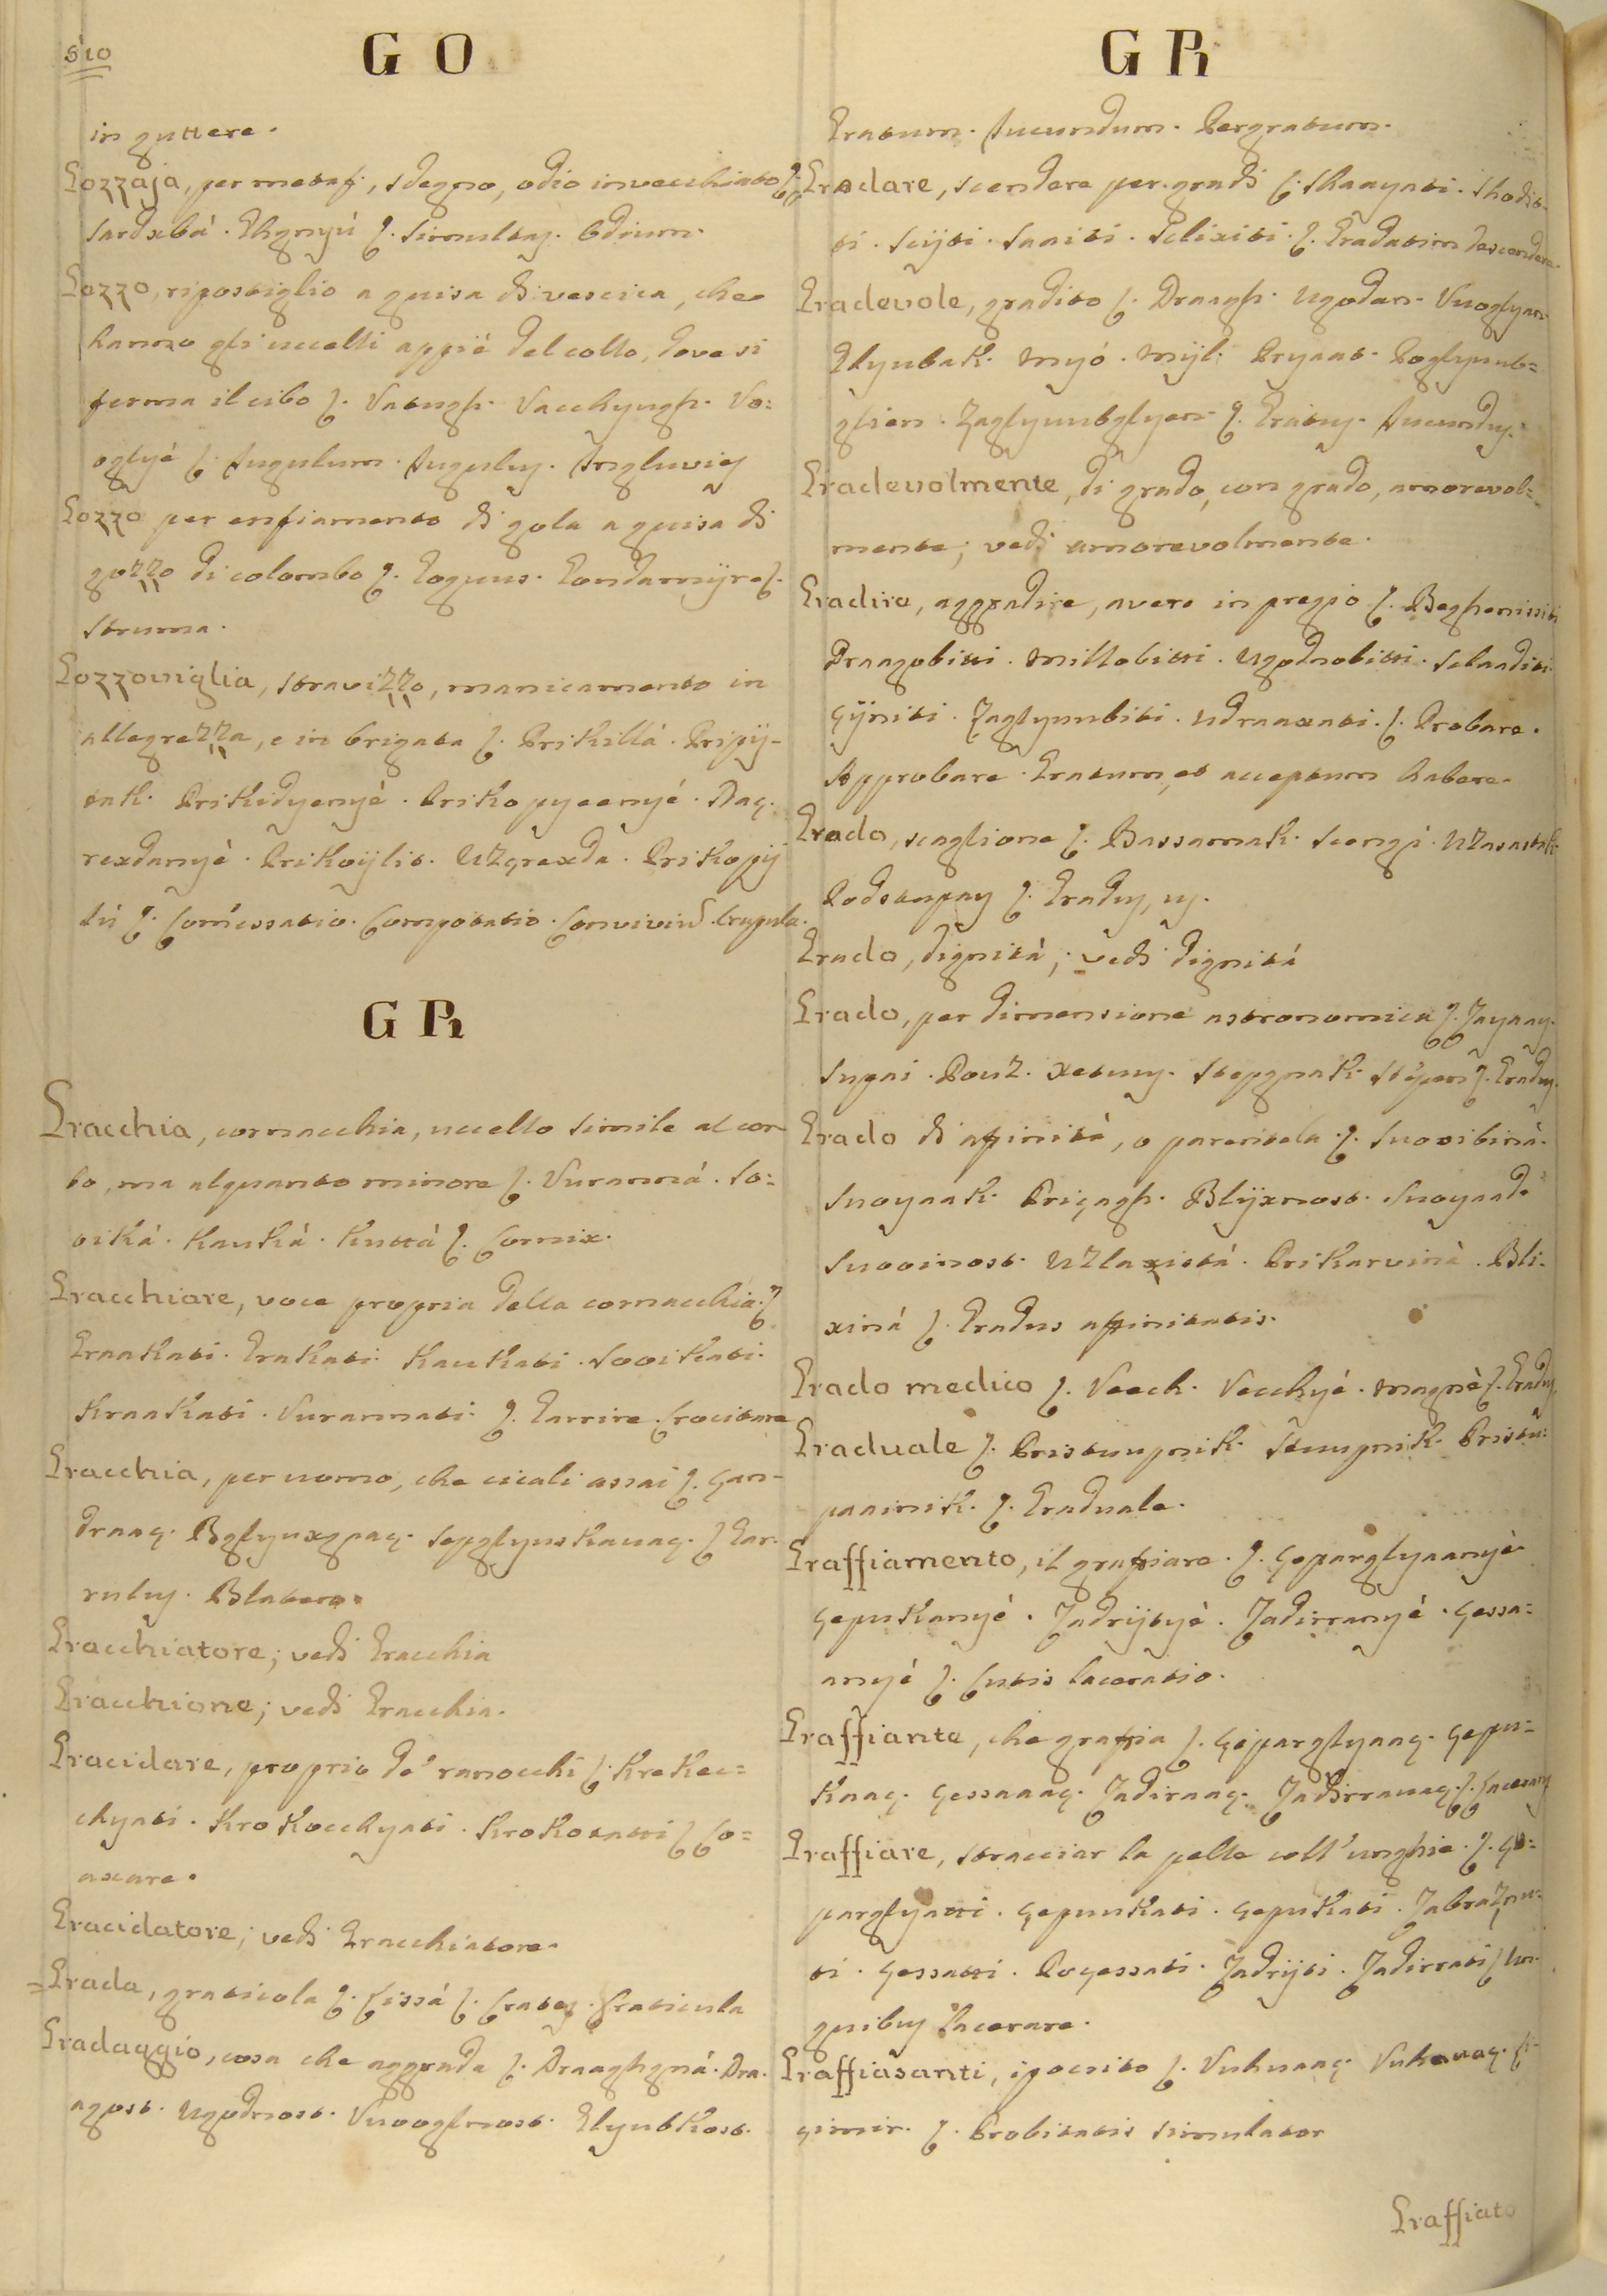 510
G O
in guttere.
Gozzaja, per metaf:, sdegno, odio invecchiato ſ.
Sardxbá. Ghgnyú ſ. Simultas. Odium.
Gozzo, ripostiglio a guisa di vescica, che
hanno gli uccelli appié del collo, dove si
ferma il cibo ſ. Vatugh. Vacchyugh. Vo=
oglyé ſ. Jugulum. Jugulus. Ingluvies
Gozzo per enfiamento di gola a guisa di
gozzo di colombo ſ. Goguus. Gondamijre ſ.
Struma.
Gozzoviglia, stravizzo, manicamento in
allegrezza, e in brigata ſ. Prikillá. Pripij-
tak. Prikidyenyé. Prikopyeenyé. Raz-
rexdanyé. Prikoijlit. Uzgrexda. Prikopij
lú ſ. Coméssatio. Compotatio. Conviviũ. Crapula.
G R
Gracchia, cornacchia, uccello simile al cor
bo, ma alquanto minore ſ. Vuranná. So=
viká. Kauká. Kuttá ſ. Cornix.
Gracchiare, voce propria della cornacchia. ſ
Graakati. Grakati. Kaukati. Sooikati.
Kraakati. Vurannati. ſ. Garrire. Crocitare
Gracchia, per uomo, che cicali assai ſ. Çan-
draaç. Bglyuxgpaç. Sepglyuskauaç. ſ Gar-
rulus. Blatero.
Gracchiatore; vedi Gracchia
Gracchione; vedi Gracchia.
Gracidare, proprio de' ranocchi ſ. Krekec=
chyati. Krokocchyati. Krokotatti ſ Co=
axare.
Gracidatore; vedi Gracchiatore.
=Grada, graticola ſ. Cissá ſ. Crates. Craticula
Gradaggio, cosa che aggrada ſ. Draaghgná. Dra-
agost. Ugodnost. Vuooglnost. Glyubkost.
G R
Gratum. Jucundum. Pergratum.
Gradare, scendere per gradi ſ. Skaayati. Skodit-
ti. Sijti. Saaiti. Sclixiti. ſ. Gradatim descendere.
Gradevole, gradito ſ. Draagh. Ugodan. Vuoglyan.
Glyubak. Myó. Mijl. Pryaat. Poglyuub=
glien. Zaglyuubglyen. ſ. Gratus. Jucundus.
Gradevolmente, di grado, con grado, amorevol=
mente; vedi amorevolmente.
Gradire, aggradire, avere in pregio ſ. Beghenissiti
Draagobitti. Millobitti. Ugodnobitti. Sclaaditi.
Çijniti. Zaglyuubiti. Udraaxati. ſ. Probare.
Approbare. Gratum, et acceptum habere.
Grado, scaglione ſ. Bassamak. Scengi. Uzasastik.
Podstupay ſ. Gradus, us.
Grado, dignitá; vedi dignitá
Grado, per dimensione astronomica ſ. Jayaay.
Supai. Pouz. Xetuuy. Stepgnak. Stépen ſ. Gradus.
Grado di affinitá, o parentela. ſ. Suooibiná.
Suoyaak. Priçagh. Blijxnost. Suoyaad.
Suooinost. Uzlaxistá. Prikarviná. Bli-
xiná ſ. Gradus affinitatis.
Grado medico ſ. Veech. Vecchyé. Magné ſ. Gradus
Graduale ſ. Pristuupnik. Stuupnik. Pristu=
paainik. ſ. Graduale.
Graffiamento, il graffiare. ſ. Çeparglyaanyé.
Çepukanyé. Zadrijtyé. Zadirranyé. Çessa=
anyé ſ. Cutis laceratio.
Graffiante, che graffia ſ. Çeparglyaaç. Çepu=
kaaç. Çessaaaç. Zadiraaç. Zadirrauaç. ſ. Lacerans
Graffiare, stracciar la pelle coll' unghie. ſ. Çe=
parglyatti. Çepuukati. Çepukati. Zabraznu=
ti. Çessatti. Poçessati. Zadrijti. Zadirrati ſ Un-
guibus lacerare.
Graffiasanti, ipocrito ſ. Vuhuaaç. Vuhauaç. Li-
çimir. ſ. Probitatis simulator
Graffiato